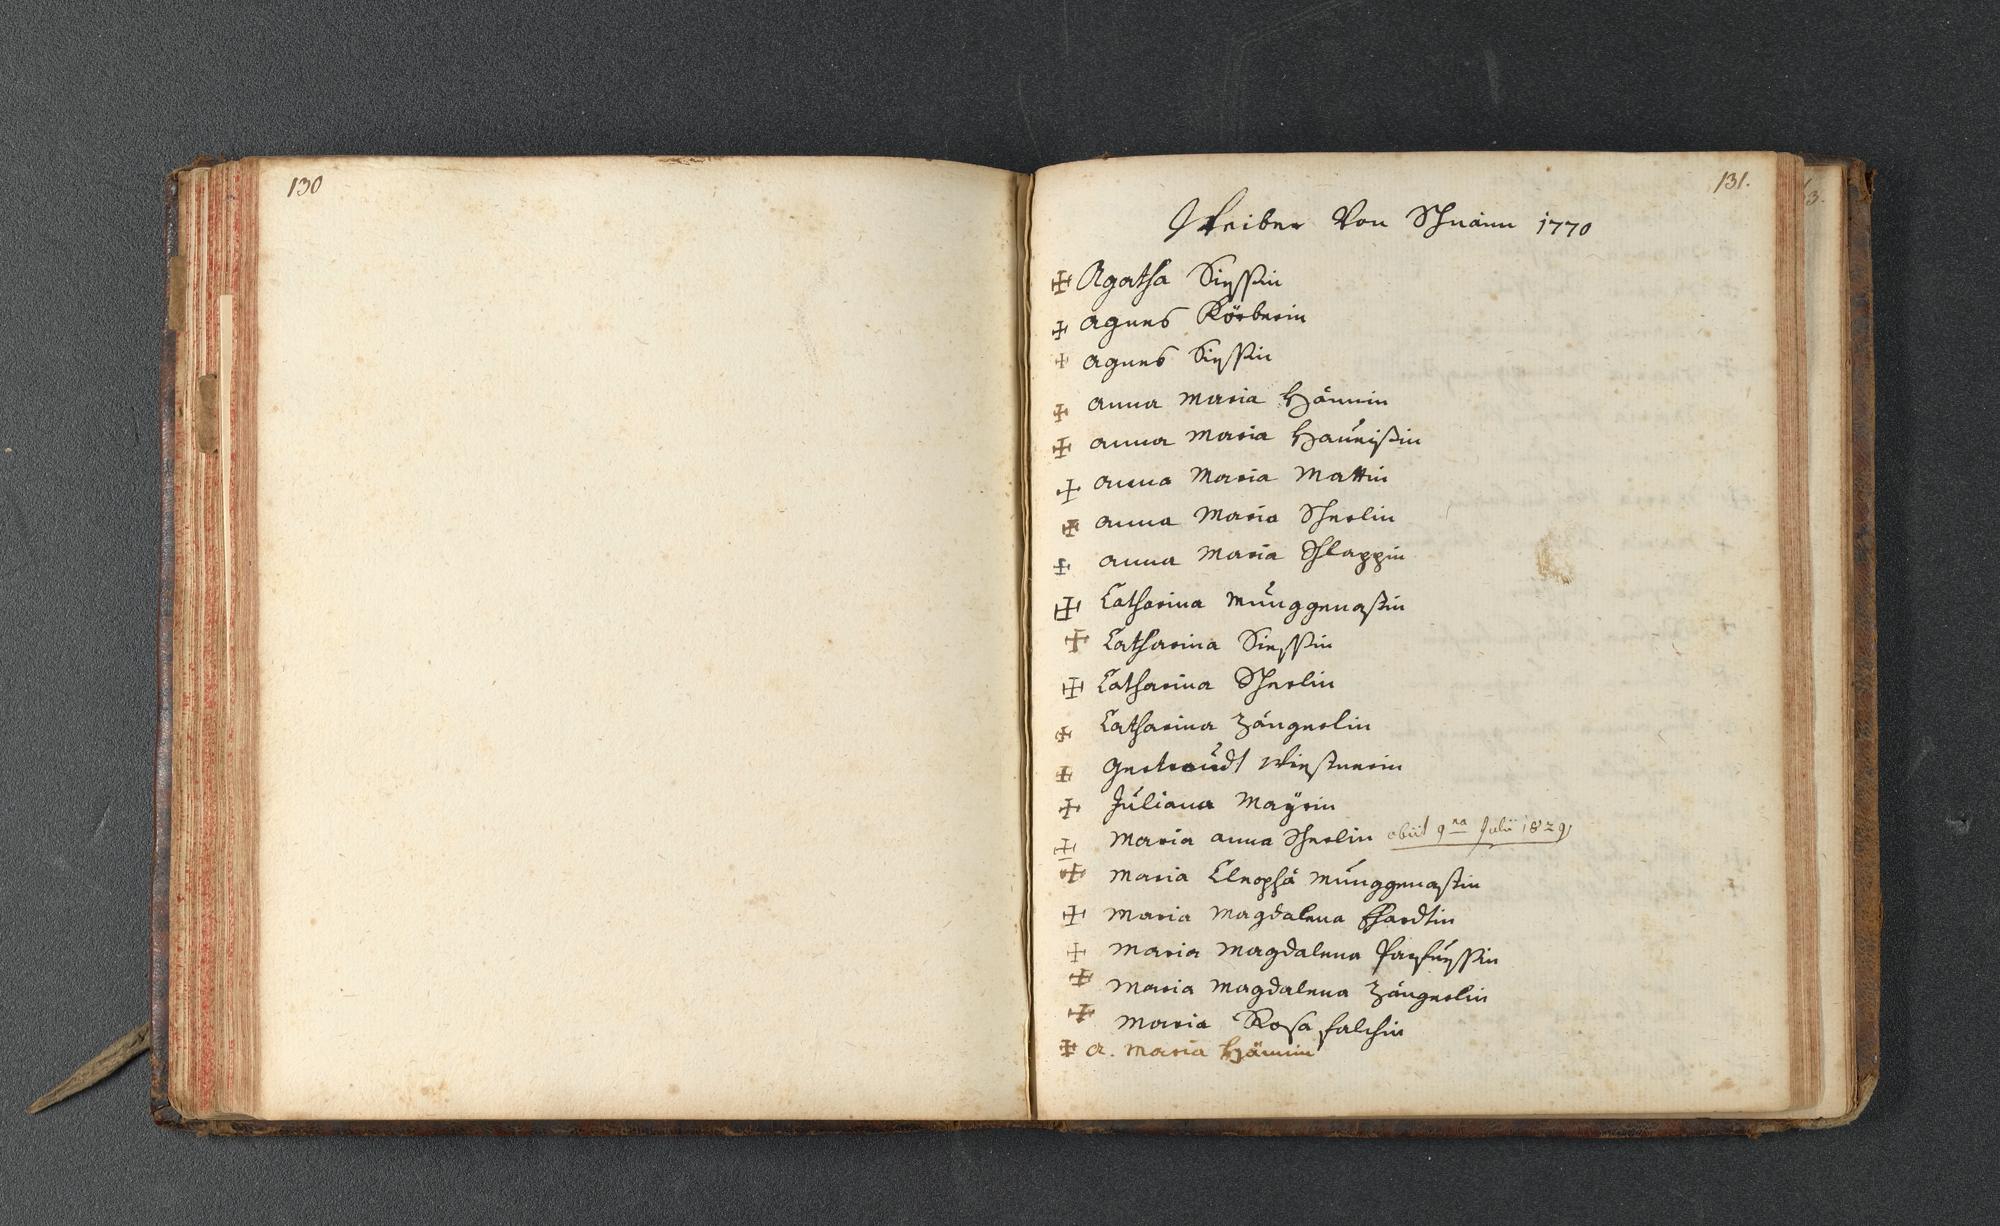 130
131.
Weiber Von Schnänn 1770
Agatha Siessin
Agnes Körberin
Agnes Siessin
Anna Maria Hämin
Anna Maria Haueisin
Anna Maria Mattin
Anna Maria Scherlin
Anna Maria Schlappin
Catharina Münggenastin
Catharina Siessin
Catharina Scherlin
Catharina Zängerlin
Gertraudt
Juliana Mayrin
Maria Anna Scherlin obiit 9na Julii 1829
Maria Cleophä Münggenastin
Maria Magdalena
Maria Magdalena
Maria Magdalena Zängerlin
Maria Rosa Falchin
A. Maria Hämin